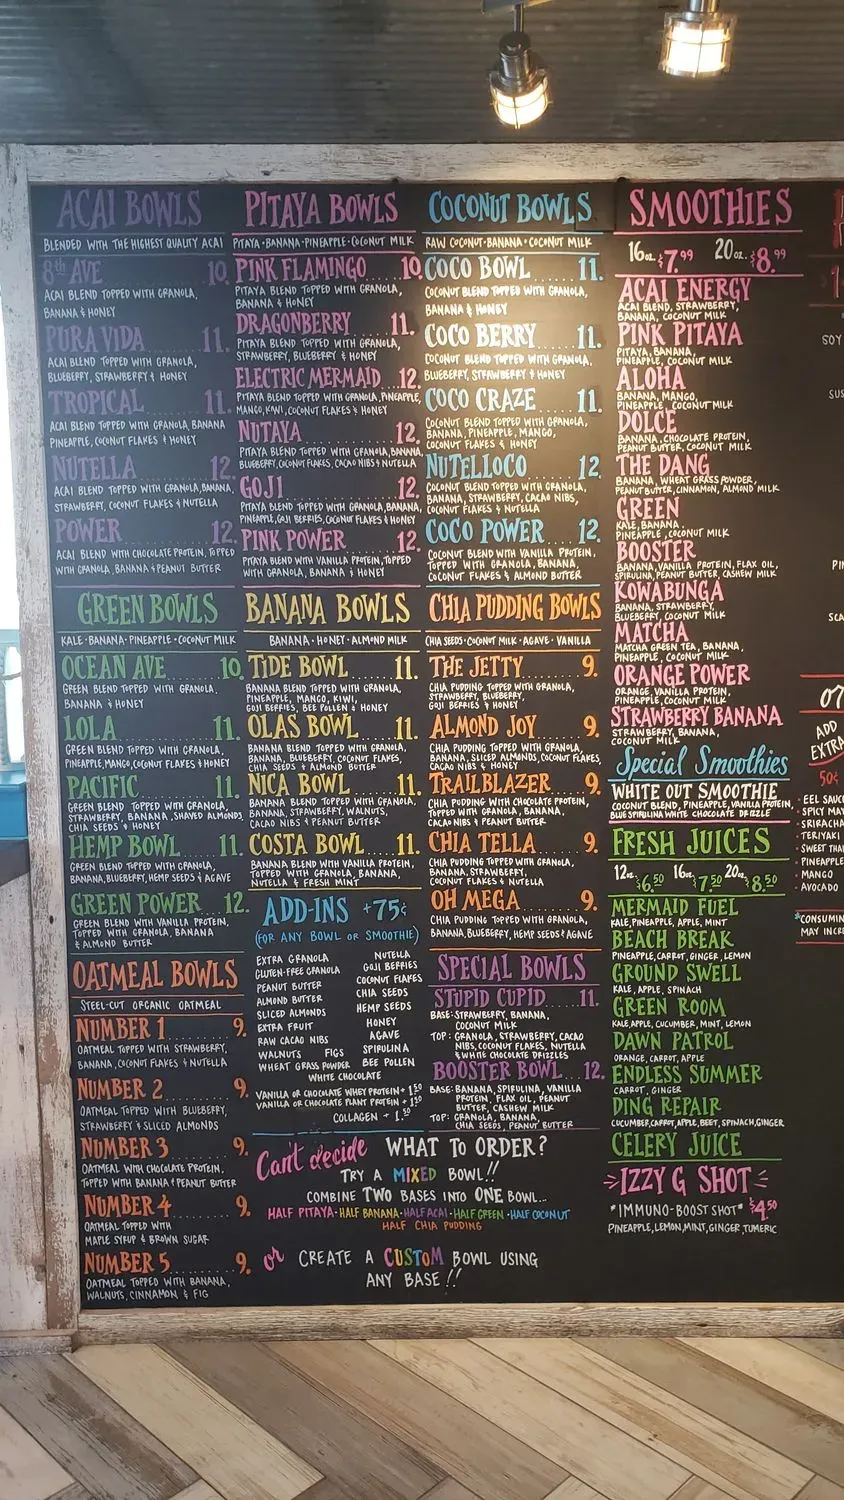 ACAI BOWLS
BLENDED WITH THE HIGHEST QUALITY ACAI
8th AVE 10.
ACAI BLEND TOPPED WITH GRANOLA,
BANANA & HONEY
PURA VIDA 11.
ACAI BLEND TOPPED WITH GRANOLA,
BLUEBERRY, STRAWBERRY & HONEY
TROPICAL 11.
ACAI BLEND TOPPED WITH GRANOLA, BANANA
PINEAPPLE, COCONUT FLAKES & HONEY
NUTELLA 12.
ACAI BLEND TOPPED WITH GRANOLA, BANANA,
STRAWBERRY, COCONUT FLAKES & NUTELLA
POWER 12.
ACAI BLEND WITH CHOCOLATE PROTEIN, TOPPED
WITH GRANOLA, BANANA & PEANUT BUTTER
GREEN BOWLS
KALE • BANANA • PINEAPPLE • COCONUT MILK
OCEAN AVE 10.
GREEN BLEND TOPPED WITH GRANOLA,
BANANA & HONEY
LOLA 11.
GREEN BLEND TOPPED WITH GRANOLA,
PINEAPPLE, MANGO, COCONUT FLAKES & HONEY
PACIFIC 11.
GREEN BLEND TOPPED WITH GRANOLA,
STRAWBERRY, BANANA, SHAVED ALMONDS,
CHIA SEEDS & HONEY
HEMP BOWL 11.
GREEN BLEND TOPPED WITH GRANOLA,
BANANA, BLUEBERRY, HEMP SEEDS & AGAVE
GREEN POWER 12.
GREEN BLEND WITH VANILLA PROTEIN,
TOPPED WITH GRANOLA, BANANA
& ALMOND BUTTER
OATMEAL BOWLS
STEEL-CUT ORGANIC OATMEAL
NUMBER 1 9.
OATMEAL TOPPED WITH STRAWBERRY,
BANANA, COCONUT FLAKES & NUTELLA
NUMBER 2 9.
OATMEAL TOPPED WITH BLUEBERRY,
STRAWBERRY & SLICED ALMONDS
NUMBER 3 9.
OATMEAL WITH CHOCOLATE PROTEIN,
TOPPED WITH BANANA & PEANUT BUTTER
NUMBER 4 9.
OATMEAL TOPPED WITH
MAPLE SYRUP & BROWN SUGAR
NUMBER 5 9.
OATMEAL TOPPED WITH BANANA,
WALNUTS, CINNAMON & FIG
PITAYA BOWLS
PITAYA • BANANA • PINEAPPLE • COCONUT MILK
PINK FLAMINGO 10.
PITAYA BLEND TOPPED WITH GRANOLA,
BANANA & HONEY
DRAGONBERRY 11.
PITAYA BLEND TOPPED WITH GRANOLA,
STRAWBERRY, BLUEBERRY & HONEY
ELECTRIC MERMAID 12.
PITAYA BLEND TOPPED WITH GRANOLA, PINEAPPLE,
MANGO, KIWI, COCONUT FLAKES & HONEY
NUTAYA 12.
PITAYA BLEND TOPPED WITH GRANOLA, BANANA,
BLUEBERRY, COCONUT FLAKES, CACAO NIBS & NUTELLA
GOJI 12.
PITAYA BLEND TOPPED WITH GRANOLA, BANANA,
PINEAPPLE, GOJI BERRIES, COCONUT FLAKES & HONEY
PINK POWER 12.
PITAYA BLEND WITH VANILLA PROTEIN, TOPPED
WITH GRANOLA, BANANA & HONEY
BANANA BOWLS
BANANA • HONEY • ALMOND MILK
TIDE BOWL 11.
BANANA BLEND TOPPED WITH GRANOLA,
PINEAPPLE, MANGO, KIWI,
GOJI BERRIES, BEE POLLEN & HONEY
OLAS BOWL 11.
BANANA BLEND TOPPED WITH GRANOLA,
BANANA, BLUEBERRY, COCONUT FLAKES,
CHIA SEEDS & ALMOND BUTTER
NICA BOWL 11.
BANANA BLEND TOPPED WITH GRANOLA,
BANANA, STRAWBERRY, WALNUTS,
CACAO NIBS & PEANUT BUTTER
COSTA BOWL 11.
BANANA BLEND WITH VANILLA PROTEIN,
TOPPED WITH GRANOLA, BANANA,
NUTELLA & FRESH MINT
ADD-INS +75¢
(FOR ANY BOWL OR SMOOTHIE)
EXTRA GRANOLA
GLUTEN-FREE GRANOLA
PEANUT BUTTER
ALMOND BUTTER
SLICED ALMONDS
EXTRA FRUIT
RAW CACAO NIBS
WALNUTS FIGS
WHEAT GRASS POWDER
NUTELLA
GOJI BERRIES
COCONUT FLAKES
CHIA SEEDS
HEMP SEEDS
HONEY
AGAVE
SPIRULINA
BEE POLLEN
WHITE CHOCOLATE
VANILLA OR CHOCOLATE WHEY PROTEIN + 1.50
VANILLA OR CHOCOLATE PLANT PROTEIN + 1.50
COLLAGEN + 1.50
COCONUT BOWLS
RAW COCONUT • BANANA • COCONUT MILK
COCO BOWL 11.
COCONUT BLEND TOPPED WITH GRANOLA,
BANANA & HONEY
COCO BERRY 11.
COCONUT BLEND TOPPED WITH GRANOLA,
BLUEBERRY, STRAWBERRY & HONEY
COCO CRAZE 11.
COCONUT BLEND TOPPED WITH GRANOLA,
BANANA, PINEAPPLE, MANGO,
COCONUT FLAKES & HONEY
NUTELLOCO 12.
COCONUT BLEND TOPPED WITH GRANOLA,
BANANA, STRAWBERRY, CACAO NIBS,
COCONUT FLAKES & NUTELLA
COCO POWER 12.
COCONUT BLEND WITH VANILLA PROTEIN,
TOPPED WITH GRANOLA, BANANA,
COCONUT FLAKES & ALMOND BUTTER
CHIA PUDDING BOWLS
CHIA SEEDS • COCONUT MILK • AGAVE • VANILLA
THE JETTY 9.
CHIA PUDDING TOPPED WITH GRANOLA,
STRAWBERRY, BLUEBERRY,
GOJI BERRIES & HONEY
ALMOND JOY 9.
CHIA PUDDING TOPPED WITH GRANOLA,
BANANA, SLICED ALMONDS, COCONUT FLAKES,
CACAO NIBS & HONEY
TRAILBLAZER 9.
CHIA PUDDING WITH CHOCOLATE PROTEIN,
TOPPED WITH GRANOLA, BANANA,
CACAO NIBS & PEANUT BUTTER
CHIA TELLA 9.
CHIA PUDDING TOPPED WITH GRANOLA,
BANANA, STRAWBERRY,
COCONUT FLAKES & NUTELLA
OH MEGA 9.
CHIA PUDDING TOPPED WITH GRANOLA,
BANANA, BLUEBERRY, HEMP SEEDS & AGAVE
SPECIAL BOWLS
STUPID CUPID 11.
BASE: STRAWBERRY, BANANA,
COCONUT MILK
TOP: GRANOLA, STRAWBERRY, CACAO
NIBS, COCONUT FLAKES, NUTELLA
& WHITE CHOCOLATE DRIZZLES
BOOSTER BOWL 12.
BASE: BANANA, SPIRULINA, VANILLA
PROTEIN, FLAX OIL, PEANUT
BUTTER, CASHEW MILK
TOP: GRANOLA, BANANA,
CHIA SEEDS, PEANUT BUTTER
Can't decide WHAT TO ORDER?
TRY A MIXED BOWL!!
COMBINE TWO BASES INTO ONE BOWL...
HALF PITAYA • HALF BANANA • HALF ACAI • HALF GREEN • HALF COCONUT
HALF CHIA PUDDING
or CREATE A CUSTOM BOWL USING
ANY BASE!!
SMOOTHIES
16oz. $7.99 20oz. $8.99
ACAI ENERGY
ACAI BLEND, STRAWBERRY,
BANANA, COCONUT MILK
PINK PITAYA
PITAYA, BANANA,
PINEAPPLE, COCONUT MILK
ALOHA
BANANA, MANGO,
PINEAPPLE, COCONUT MILK
DOLCE
BANANA, CHOCOLATE PROTEIN,
PEANUT BUTTER, COCONUT MILK
THE DANG
BANANA, WHEAT GRASS POWDER,
PEANUT BUTTER, CINNAMON, ALMOND MILK
GREEN
KALE, BANANA,
PINEAPPLE, COCONUT MILK
BOOSTER
BANANA, VANILLA PROTEIN, FLAX OIL,
SPIRULINA, PEANUT BUTTER, CASHEW MILK
KOWABUNGA
BANANA, STRAWBERRY,
BLUEBERRY, COCONUT MILK
MATCHA
MATCHA GREEN TEA, BANANA,
PINEAPPLE, COCONUT MILK
ORANGE POWER
ORANGE, VANILLA PROTEIN,
PINEAPPLE, COCONUT MILK
STRAWBERRY BANANA
STRAWBERRY, BANANA,
COCONUT MILK
Special Smoothies
WHITE OUT SMOOTHIE
COCONUT BLEND, PINEAPPLE, VANILLA PROTEIN,
BLUE SPIRULINA WHITE CHOCOLATE DRIZZLE
FRESH JUICES
12oz $6.50 16oz. $7.50 20oz. $8.50
MERMAID FUEL
KALE, PINEAPPLE, APPLE, MINT
BEACH BREAK
PINEAPPLE, CARROT, GINGER, LEMON
GROUND SWELL
KALE, APPLE, SPINACH
GREEN ROOM
KALE, APPLE, CUCUMBER, MINT, LEMON
DAWN PATROL
ORANGE, CARROT, APPLE
ENDLESS SUMMER
CARROT, GINGER
DING REPAIR
CUCUMBER, CARROT, APPLE, BEET, SPINACH, GINGER
CELERY JUICE
IZZY G SHOT
*IMMUNO-BOOST SHOT* $4.50
PINEAPPLE, LEMON, MINT, GINGER, TUMERIC
SOY
ADD
EXTRA
50¢
• EEL SAUCE
• SPICY MAY
• SRIRACHA
• TERIYAKI
• SWEET THAI
• PINEAPPLE
• MANGO
• AVOCADO
*CONSUMIN
MAY INCRE